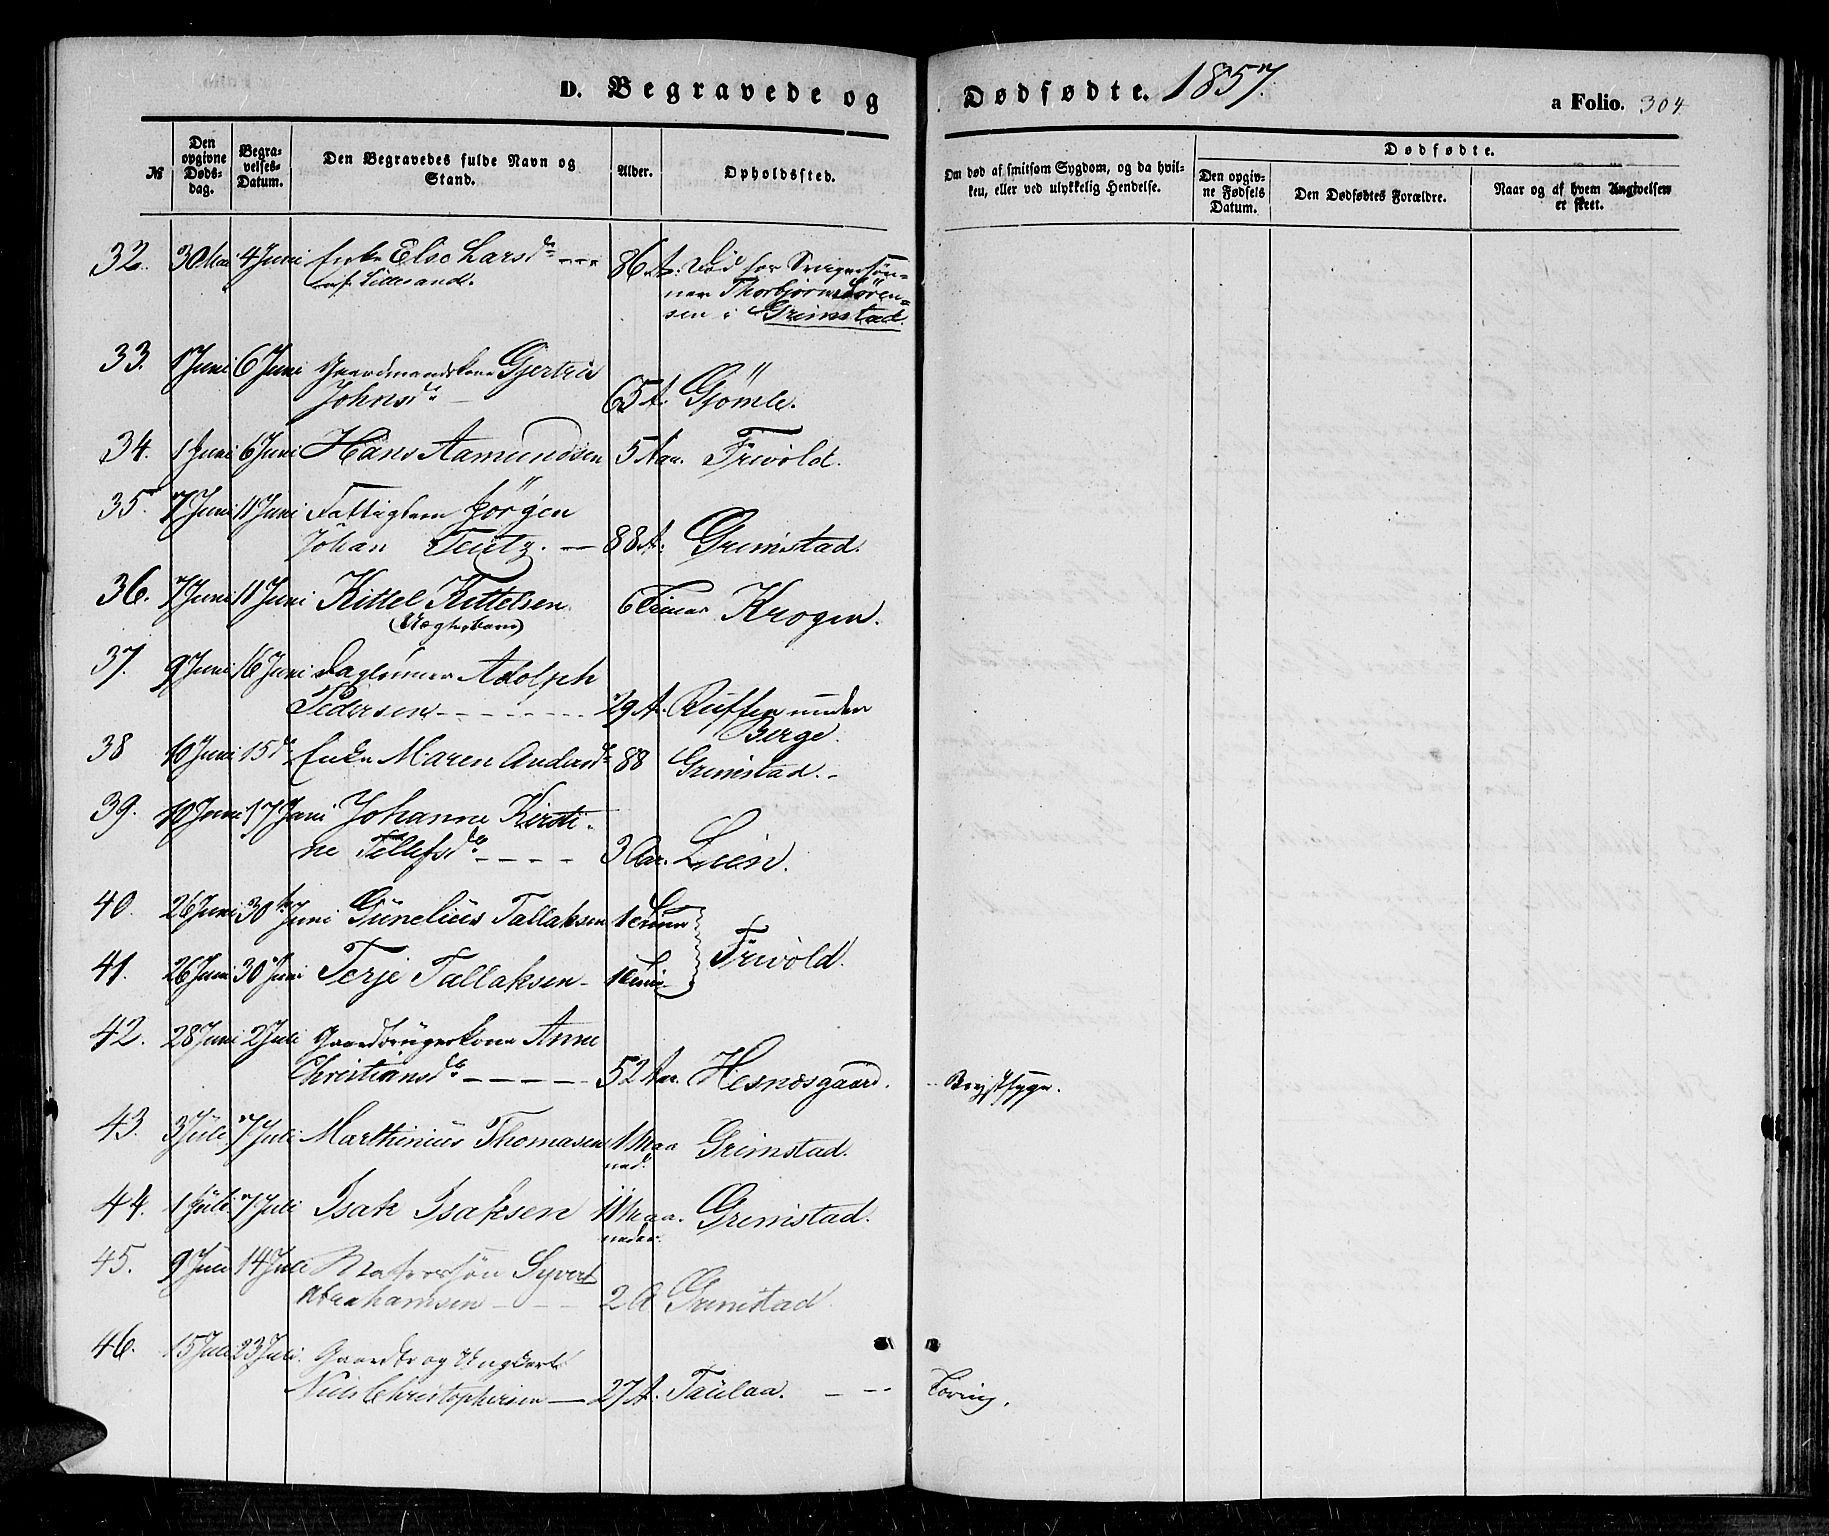 D. Begravede og Dødfødte. 1857.
a Folio. 304
№
Den opgivne Døds-dag.
Begra-velses-Datum.
Den Begravedes fulde Navn og Stand.
Alder.
Opholdssted.
Om død af smitsom Sygdom, og da hvil-ken, eller ved ulykkelig Hendelse.
Dødfødte.
Den opgiv-ne Fødsels Datum.
Den Dødfødtes Forældre.
Naar og af hvem Angivelsen er skeet.
32. 30 Mai 4 Juni Enke Else Larsdr ---- 86 A. Død hos Svigersøn-
af Lillesand. nen Thorbjørn Søren-
sen i Grimstad.
33. 1 Juni 6 Juni Gaardmandskone Gjertrud
Johnsdr — 65 A. Gjömle.
34. 1 Juni 6 Juni Hans Aamundsen 5 Aar. Frivold.
35. 7 Juni 11 Juni Fattiglem Jörgen
Johan Teutz. — 88 A. Grimstad.
36. 7 Juni 11 Juni Kittel Kittelsen 6 Timer Krogen.
(Uægte barn)
37. 9 Juni 16 Juni Daglönner Adolph
Pedersen -------- 29 A. Ruffen under
Berge.
38 10 Juni 15 do Enke Maren Andersdr 88 Grimstad.-
39. 10 Juni 17 Juni Johanne Kirsti-
ne Tellefsdr ---- 3 Aar. Lien.
40. 26 Juni 30te Juni Gunelius Tallaksen 1 Time
Frivold.
41. 26 Juni 30 Juni Terje Tallaksen - 1 Time
42. 28 Juni 2 Juli Gaardbrugerkone Anne
Christiansdr ----- 52 Aar. Hesnæsgaard. -- Brystsyge.
43. 3 Juli 7 Juli Marthinius Thomasen 1 Maa Grimstad.
ned.
44. 1 Juli 7 Juli Isak Isaksen 11 Maa. Grimstad.
neder.
45. 9 Juli 14 Juli Matrossön Syvert
Abrahamsen - - - 2 A Grimstad.
46. 15 Juli 23 Juli. Gaardbr og Ungkarl
Niels Christophersen — 27 A. Taulaa. - --